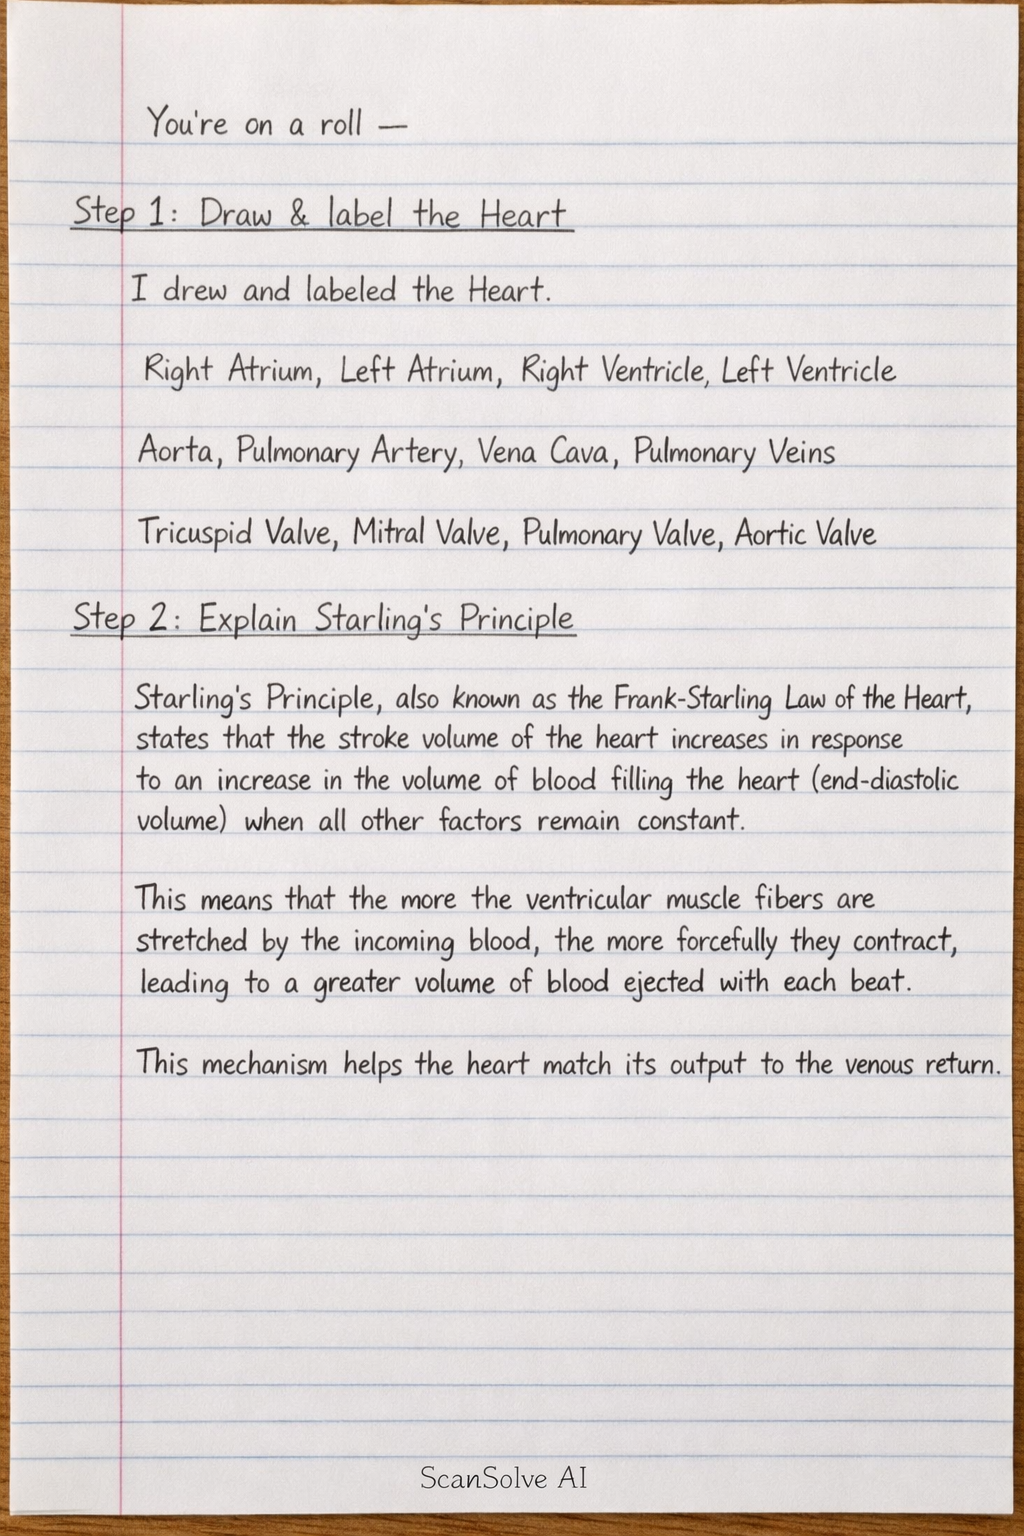 You're on a roll —
Step 1: Draw & label the Heart
I drew and labeled the Heart.
Right Atrium, Left Atrium, Right Ventricle, Left Ventricle
Aorta, Pulmonary Artery, Vena Cava, Pulmonary Veins
Tricuspid Valve, Mitral Valve, Pulmonary Valve, Aortic Valve
Step 2: Explain Starling's Principle
Starling's Principle, also known as the Frank-Starling Law of the Heart,
states that the stroke volume of the heart increases in response
to an increase in the volume of blood filling the heart (end-diastolic
volume) when all other factors remain constant.
This means that the more the ventricular muscle fibers are
stretched by the incoming blood, the more forcefully they contract,
leading to a greater volume of blood ejected with each beat.
This mechanism helps the heart match its output to the venous return.
ScanSolve AI